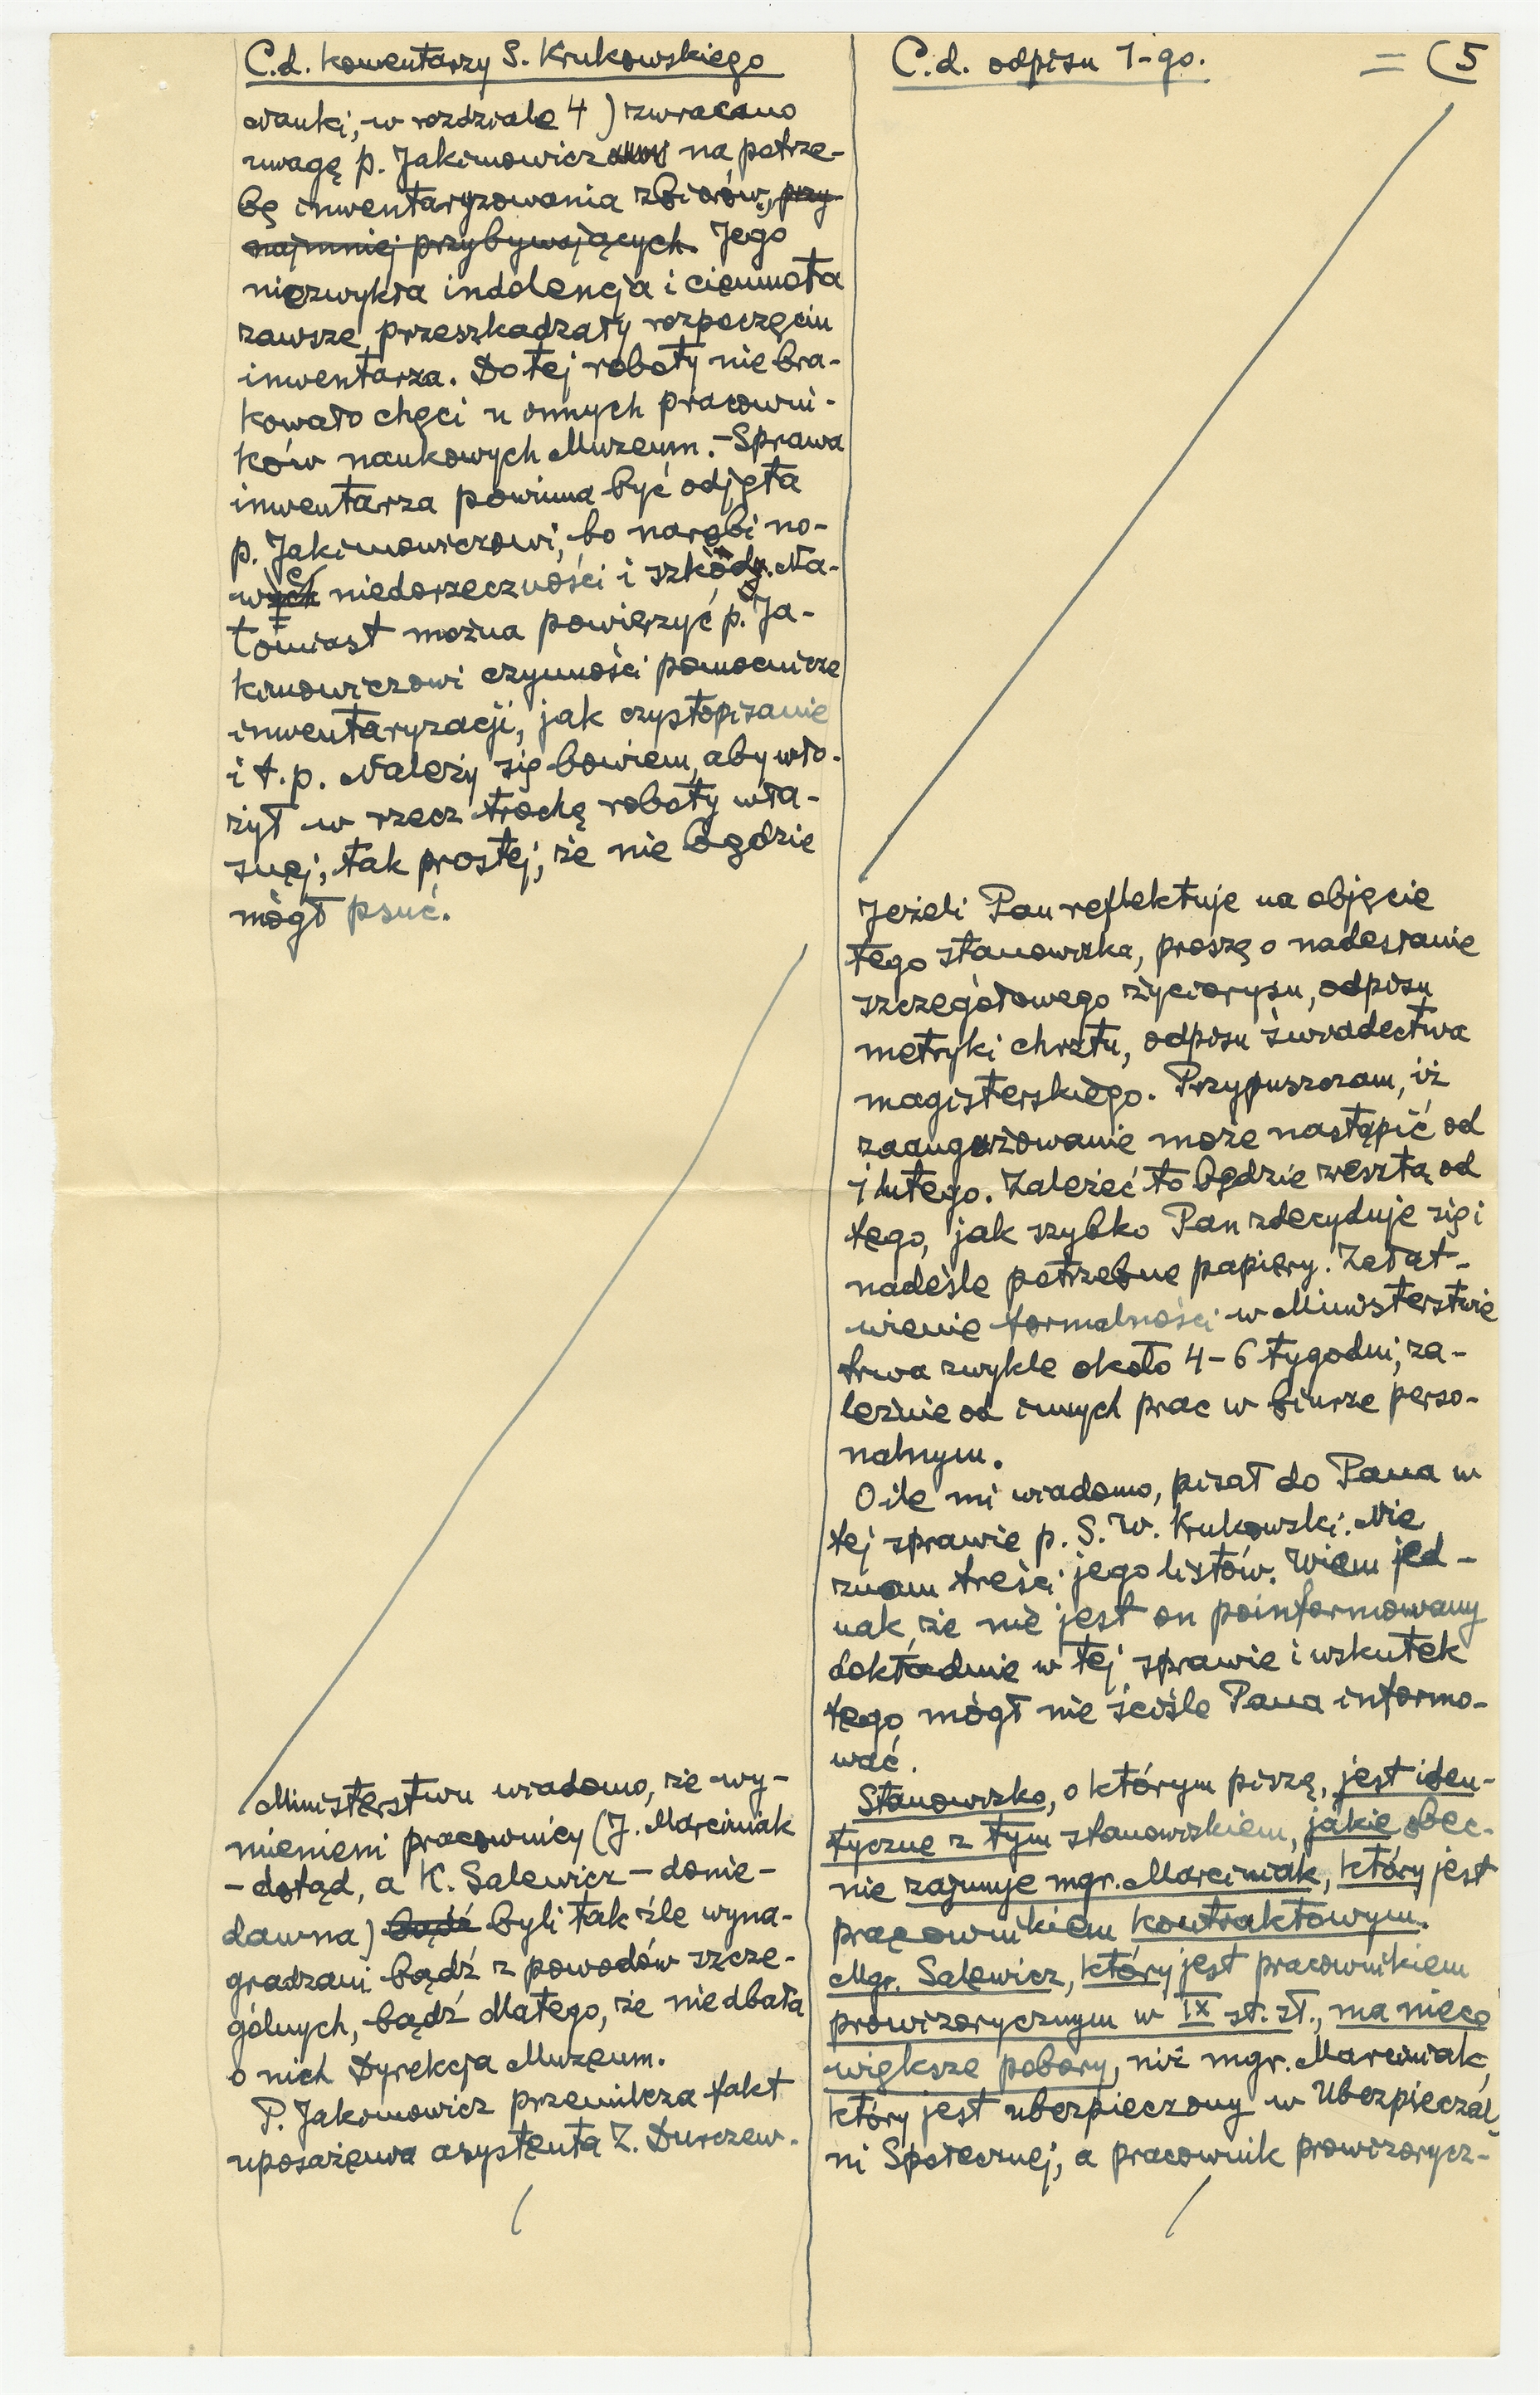 C.d. komentarzy S. Krukowskiego
Nauki, w rozdziale 4) zwracano
uwagę p. Jakimowicz na potrze-
bę inwentaryzowania zbiorów, przy-
najmniej przybywających. Jego
niezwykła indolencja i ciemnota
zawsze przeszkadzały rozpoczęciu
inwentarza. Do tej roboty nie bra-
kowało chęci u innych pracowni-
ków naukowych Muzeum. – Sprawa
inwentarza powinna być odjęta
p. Jakimowiczowi, bo narobi no-
wych niedorzeczności i szkody. Na-
tomiast można powierzyć p. Ja-
kimowiczowi czynności pomocnicze
inwentaryzacji, jak czystopisanie
i t. p. Należy się bowiem, aby wło-
żył w rzecz trochę roboty wła-
snej, tak prostej, że nie będzie
mógł psuć.
Ministerstwu wiadomo, że wy-
mienieni pracownicy (J. Marciniak
– dotąd, a K. Salewicz – donie-
dawna) bądź byli tak źle wyna-
gradzani bądź z powodów szcze-
gólnych, bądź dlatego, że nie dbała
o nich Dyrekcja Muzeum.
P. Jakimowicz przemilcza fakt
uposażenia asystenta Z. Durczew-
C.d. odpisu 1-go. = (5
Jeżeli Pan reflektuje na objęcie
tego stanowiska, proszę o nadesłanie
szczegółowego życiorysu, odpisu
metryki chrztu, odpisu świadectwa
magisterskiego. Przypuszczam, iż
zaangażowanie może nastąpić od
1 lutego. Zależeć to będzie zresztą od
tego, jak szybko Pan zdecyduje się i
nadeśle potrzebne papiery. Załat-
wienie formalności w Ministerstwie
trwa zwykle około 4–6 tygodni, za-
leżnie od innych prac w biurze perso-
nalnym.
O ile mi wiadomo, pisał do Pana w
tej sprawie p. S. W. Krukowski. Nie
znam treści jego listów. Wiem jed-
nak, że nie jest on poinformowany
dokładnie w tej sprawie i wskutek
tego mógł nie ściśle Pana informo-
wać.
Stanowisko, o którym piszę, jest iden-
tyczne z tym stanowiskiem, jakie obec-
nie zajmuje mgr. Marciniak, który jest
pracownikiem kontraktowym.
Mgr. Salewicz, który jest pracownikiem
prowizorycznym w IX st. sł., ma nieco
większe pobory, niż mgr. Marciniak,
który jest ubezpieczony w Ubezpieczal-
ni Społecznej, a pracownik prowizorycz-